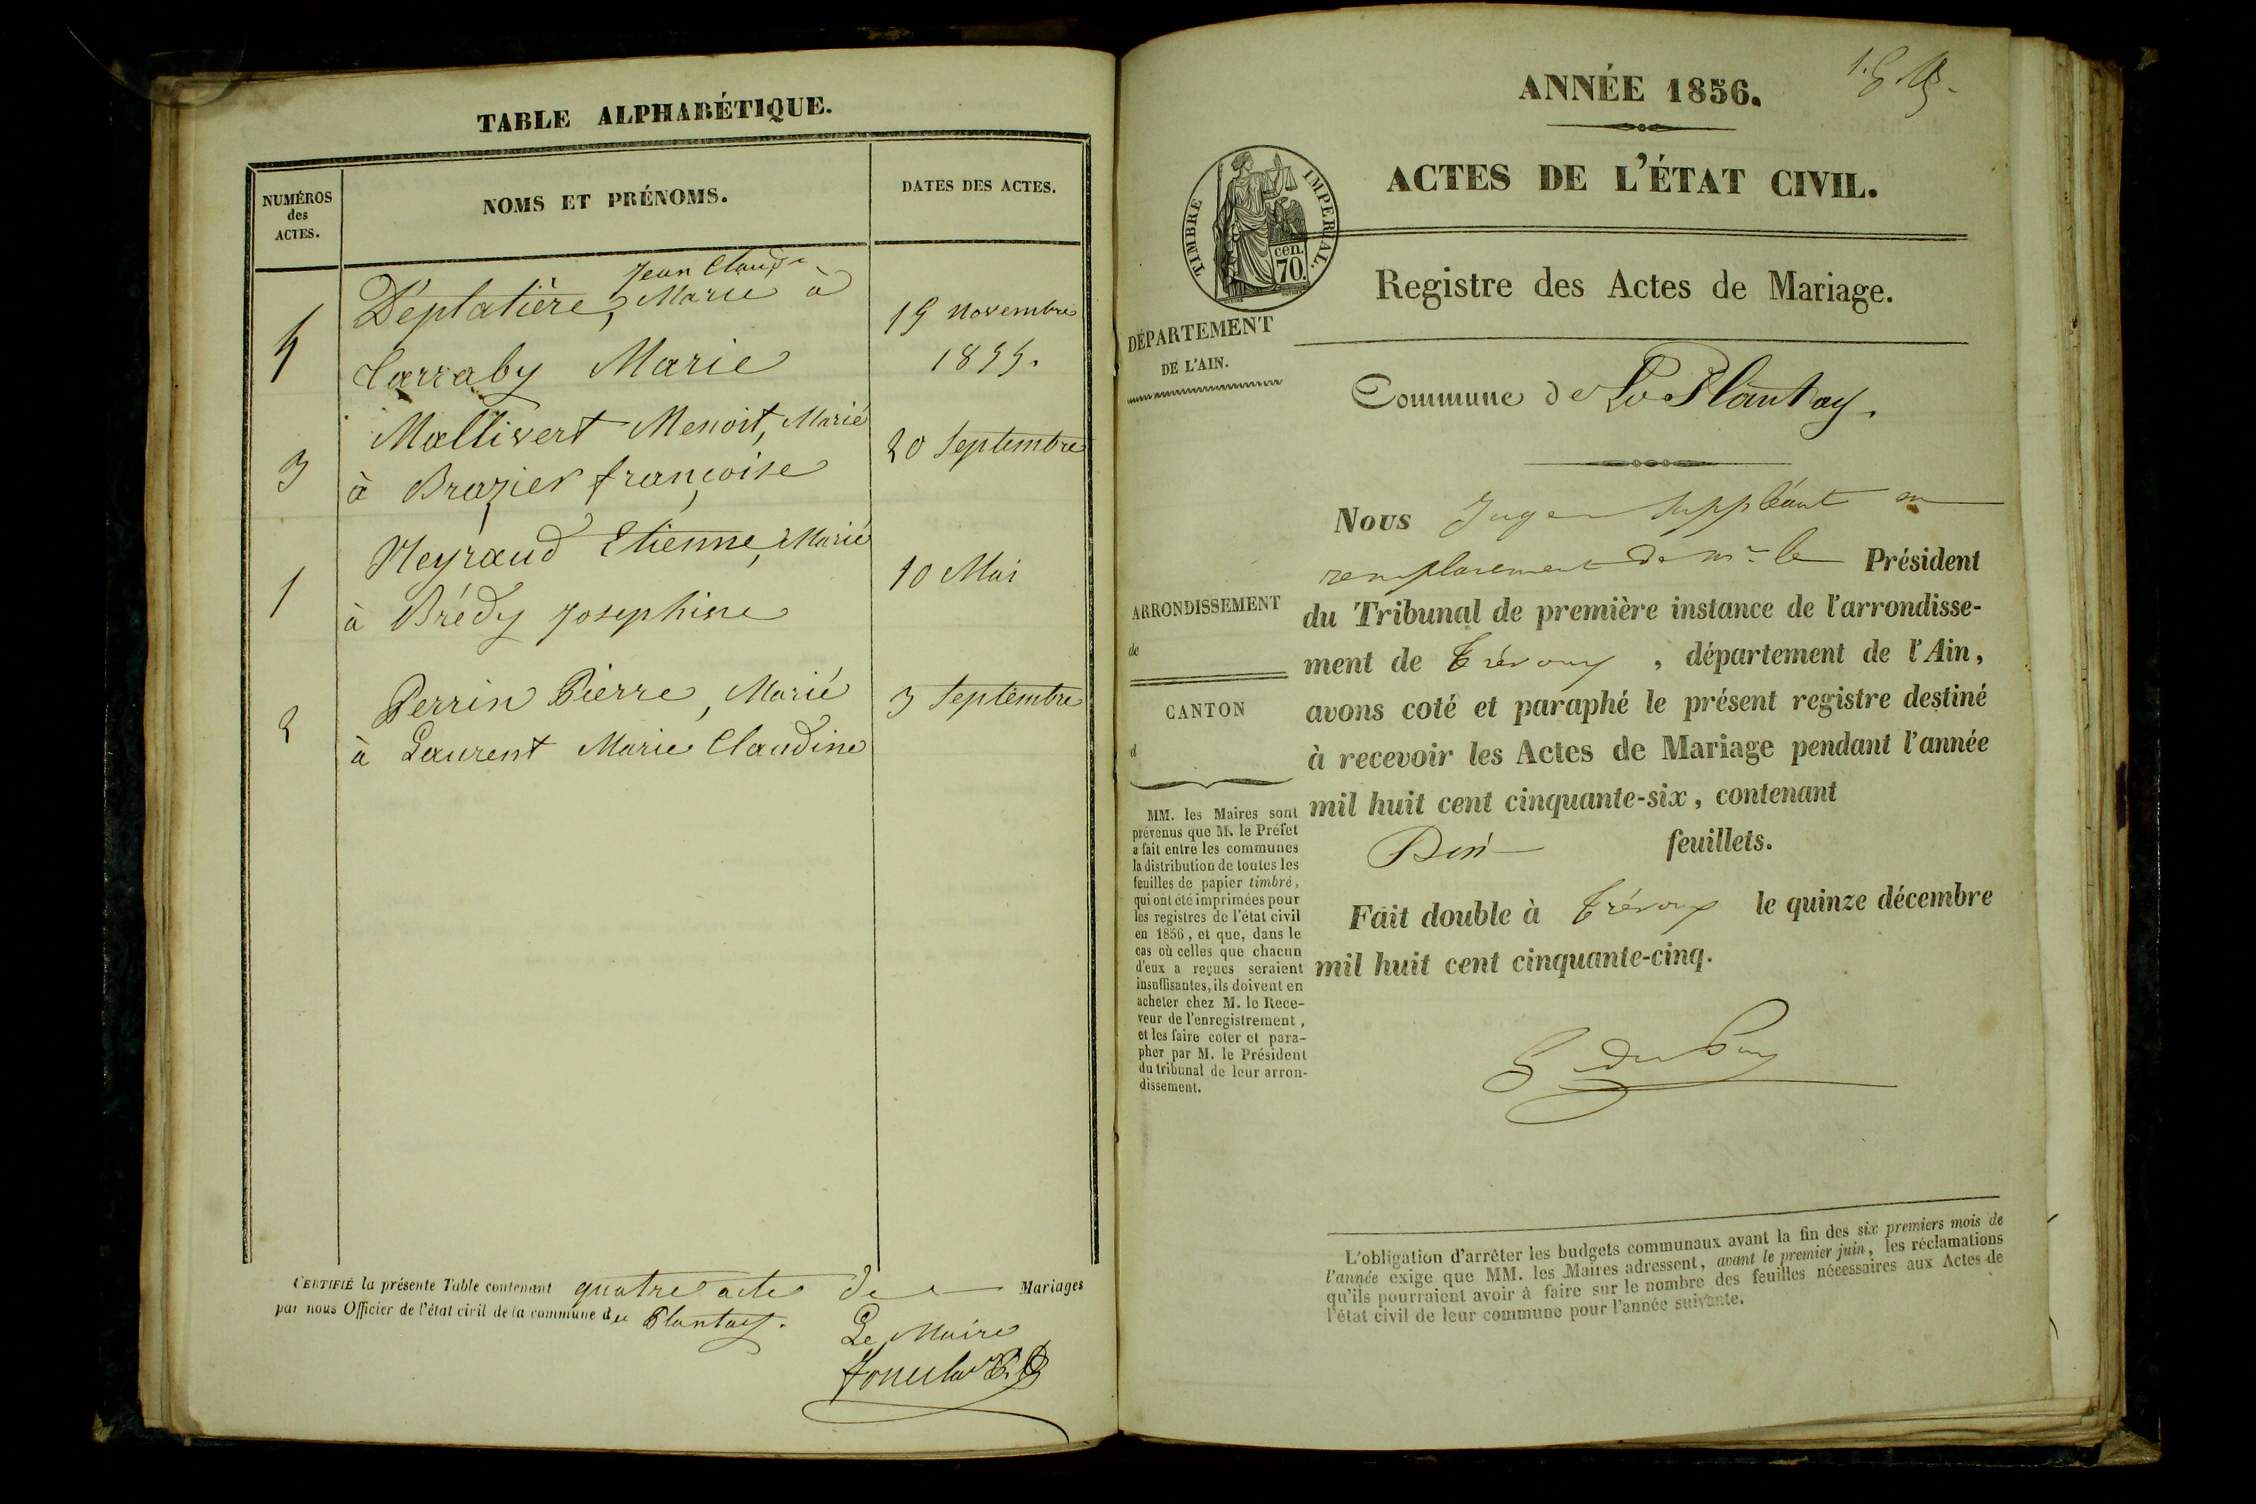 TABLE ALPHABÉTIQUE.
NUMÉROS
des
ACTES.
NOMS ET PRÉNOMS.
DATES DES ACTES.
4
Déplatière, Jean Claude Marié à
Carraby Marie
19 Novembre
1855.
3
Mallivert Menoit, Marié
à Brazier françoise
20 Septembre
1
Neyraud Etienne, Marié
à Brédy Josephine
10 Mai
2
Perrin Pierre, Marié
à Laurent Marie Claudine
3 Septembre
CERTIFIÉ la présente Table contenant quatre actes de Mariages
par nous Officier de l'état civil de la commune du Plantay.
Le Maire
ANNÉE 1856.
ACTES DE L'ÉTAT CIVIL.
TIMBRE IMPERIAL.
cen.
70.
Registre des Actes de Mariage.
DÉPARTEMENT
DE L'AIN.
Commune de Le Plantay.
Nous Juge suppléant en
remplacement de mr le Président
du Tribunal de première instance de l'arrondisse-
ment de Trévoux, département de l'Ain,
avons coté et paraphé le présent registre destiné
à recevoir les Actes de Mariage pendant l'année
mil huit cent cinquante-six, contenant
feuillets.
Fait double à Trévoux le quinze décembre
mil huit cent cinquante-cinq.
ARRONDISSEMENT
de
CANTON
d
MM. les Maires sont
prévenus que M. le Préfet
a fait entre les communes
la distribution de toutes les
feuilles de papier timbré,
qui ont été imprimées pour
les registres de l'état civil
en 1856, et que, dans le
cas où celles que chacun
d'eux a reçues seraient
insuffisantes, ils doivent en
acheter chez M. le Rece-
veur de l'enregistrement,
et les faire coter et para-
pher par M. le Président
du tribunal de leur arron-
dissement.
L'obligation d'arrêter les budgets communaux avant la fin des six premiers mois de
l'année exige que MM. les Maires adressent, avant le premier juin, les réclamations
qu'ils pourraient avoir à faire sur le nombre des feuilles nécessaires aux Actes de
l'état civil de leur commune pour l'année suivante.